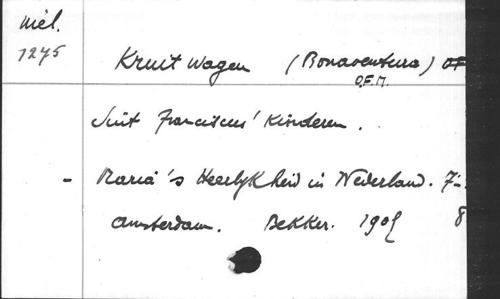 Niel.
1275
Kruitwagen (Bonaventura) OF
O.F.M.
Sint Franciscus' Kinderen.
- Maria's Heerlijkheid in Nederland. 7-
Amsterdam. Bekker. 1909 8